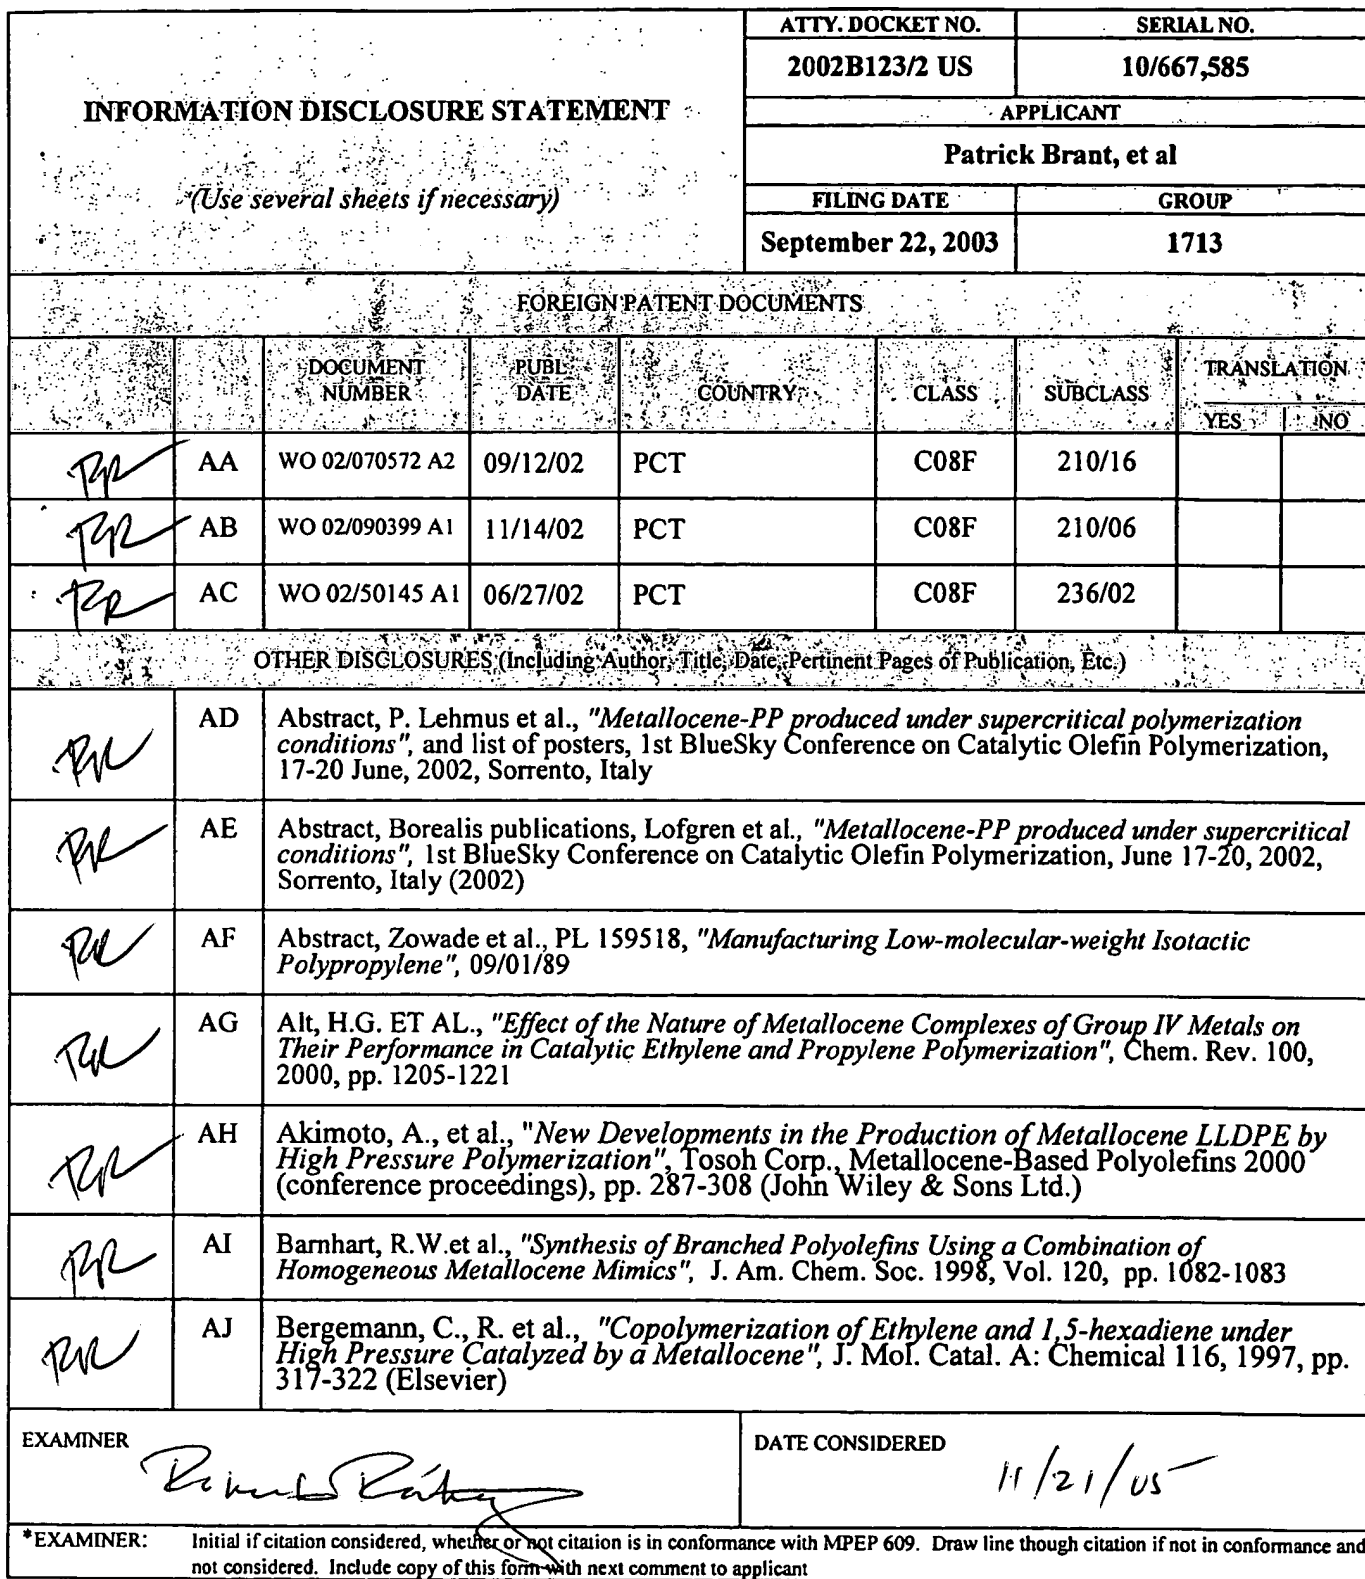 ATTY. DOCKET NO. SERIAL NO.
2002B123/2 US 10/667,585
INFORMATION DISCLOSURE STATEMENT
(Use several sheets if necessary)
APPLICANT
Patrick Brant, et al
FILING DATE GROUP
September 22, 2003 1713
FOREIGN PATENT DOCUMENTS
DOCUMENT NUMBER PUBL DATE COUNTRY CLASS SUBCLASS TRANSLATION
YES NO
AA WO 02/070572 A2 09/12/02 PCT C08F 210/16
AB WO 02/090399 A1 11/14/02 PCT C08F 210/06
AC WO 02/50145 A1 06/27/02 PCT C08F 236/02
OTHER DISCLOSURES (Including Author, Title, Date, Pertinent Pages of Publication, Etc.)
AD Abstract, P. Lehmus et al., "Metallocene-PP produced under supercritical polymerization
conditions", and list of posters, 1st BlueSky Conference on Catalytic Olefin Polymerization,
17-20 June, 2002, Sorrento, Italy
AE Abstract, Borealis publications, Lofgren et al., "Metallocene-PP produced under supercritical
conditions", 1st BlueSky Conference on Catalytic Olefin Polymerization, June 17-20, 2002,
Sorrento, Italy (2002)
AF Abstract, Zowade et al., PL 159518, "Manufacturing Low-molecular-weight Isotactic
Polypropylene", 09/01/89
AG Alt, H.G. ET AL., "Effect of the Nature of Metallocene Complexes of Group IV Metals on
Their Performance in Catalytic Ethylene and Propylene Polymerization", Chem. Rev. 100,
2000, pp. 1205-1221
AH Akimoto, A., et al., "New Developments in the Production of Metallocene LLDPE by
High Pressure Polymerization", Tosoh Corp., Metallocene-Based Polyolefins 2000
(conference proceedings), pp. 287-308 (John Wiley & Sons Ltd.)
AI Barnhart, R.W.et al., "Synthesis of Branched Polyolefins Using a Combination of
Homogeneous Metallocene Mimics", J. Am. Chem. Soc. 1998, Vol. 120, pp. 1082-1083
AJ Bergemann, C., R. et al., "Copolymerization of Ethylene and 1,5-hexadiene under
High Pressure Catalyzed by a Metallocene", J. Mol. Catal. A: Chemical 116, 1997, pp.
317-322 (Elsevier)
EXAMINER DATE CONSIDERED 11/21/05
*EXAMINER: Initial if citation considered, whether or not citation is in conformance with MPEP 609. Draw line though citation if not in conformance and
not considered. Include copy of this form with next comment to applicant